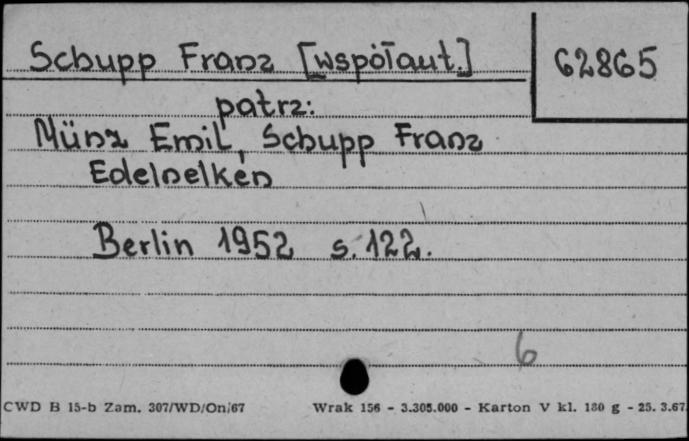 Schupp Franz [współaut.] 62865
patrz:
Münz Emil, Schupp Franz
Edelnelken
Berlin 1952 s. 122.
6
CWD B 15-b Zam. 307/WD/On/67 Wrak 156 - 3.305.000 - Karton V kl. 180 g - 25. 3.67